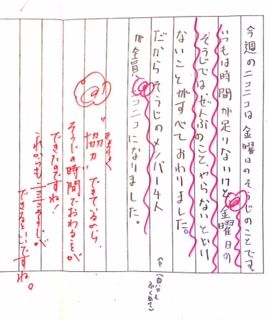 今週のニコニコは金曜日のそうじのことです。
いつもは時間が足りないけど金曜日の
そうじではぜんぶのこと、やらないといけ
ないことがすべておわりました。
だからそうじのメンバー4人
が全員ニコニコになりました。
(自分もふくめて)
協力できているから、
そうじの時間でおわることが
できたのですね!
これからもニコニコそうじが
できるといいですね。